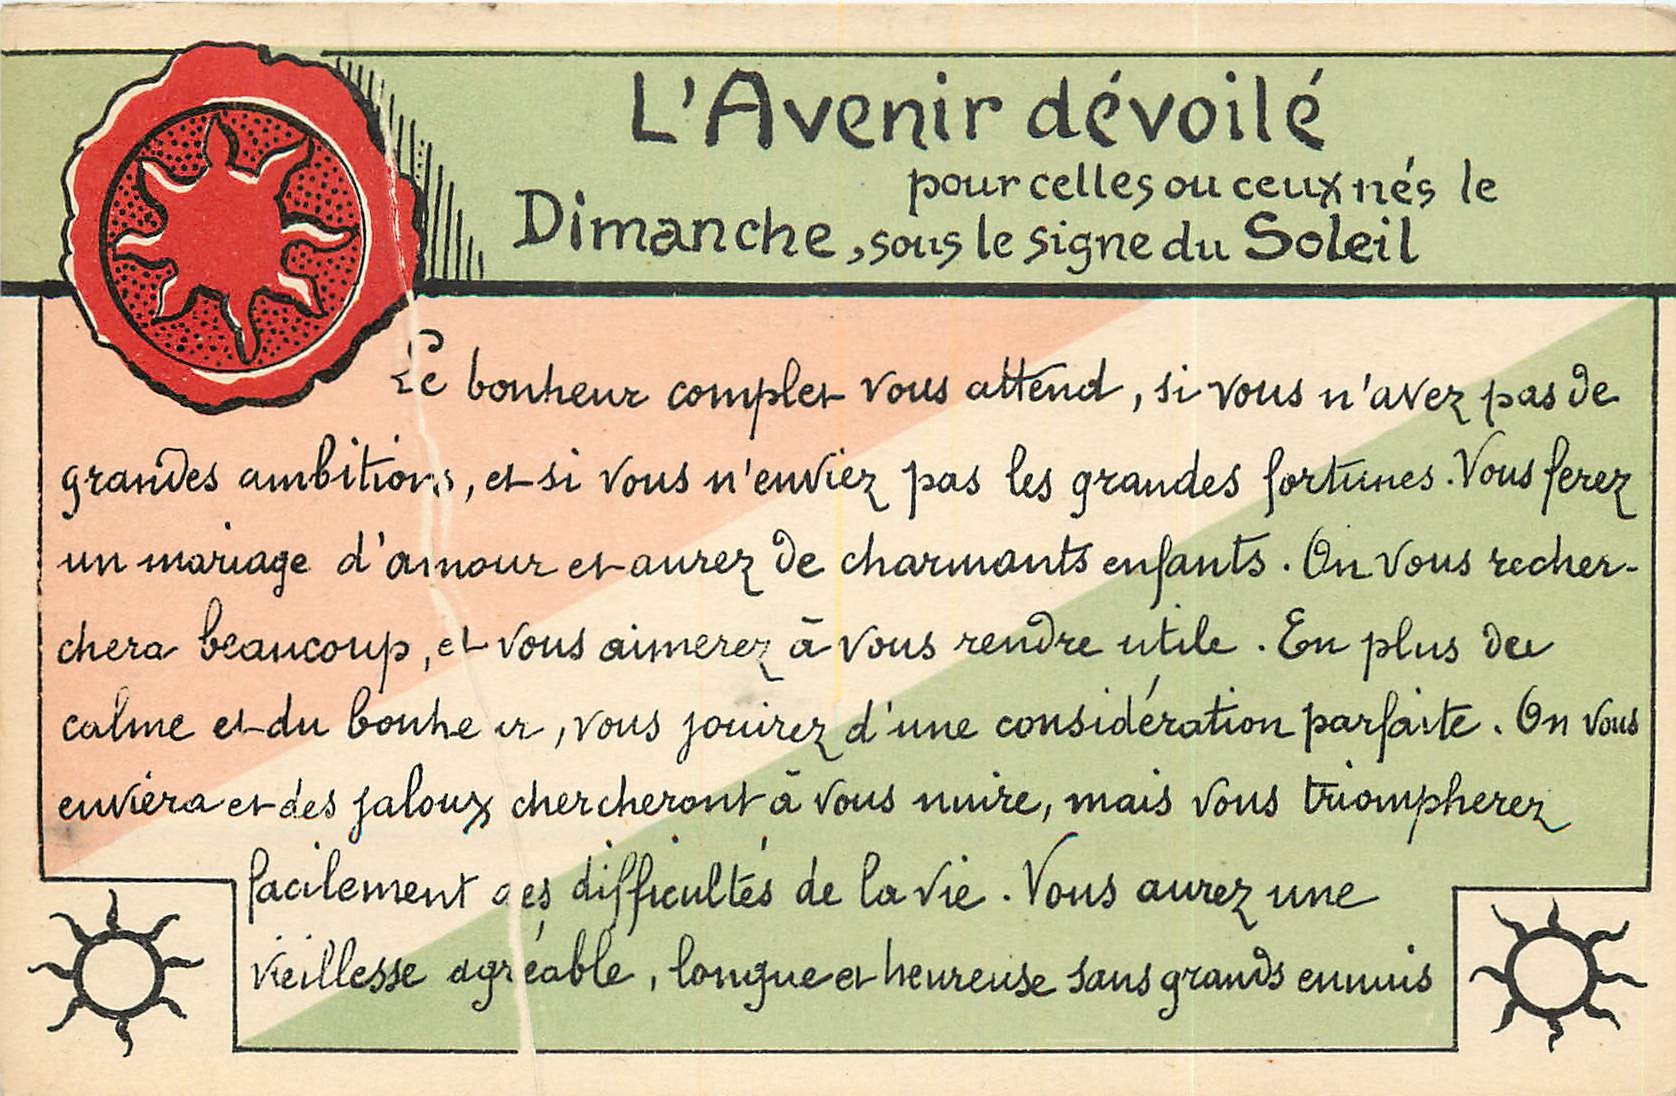 L'Avenir dévoilé
pour celles ou ceux nés le
Dimanche, sous le signe du Soleil
Le bonheur complet vous attend, si vous n'avez pas de
grandes ambitions, et si vous n'enviez pas les grandes fortunes. Vous ferez
un mariage d'amour et aurez de charmants enfants. On vous recher-
chera beaucoup, et vous aimerez à vous rendre utile. En plus du
calme et du bonheur, vous jouirez d'une considération parfaite. On vous
enviera et des jaloux chercheront à vous nuire, mais vous triompherez
facilement des difficultés de la vie. Vous aurez une
vieillesse agréable, longue et heureuse sans grands ennuis